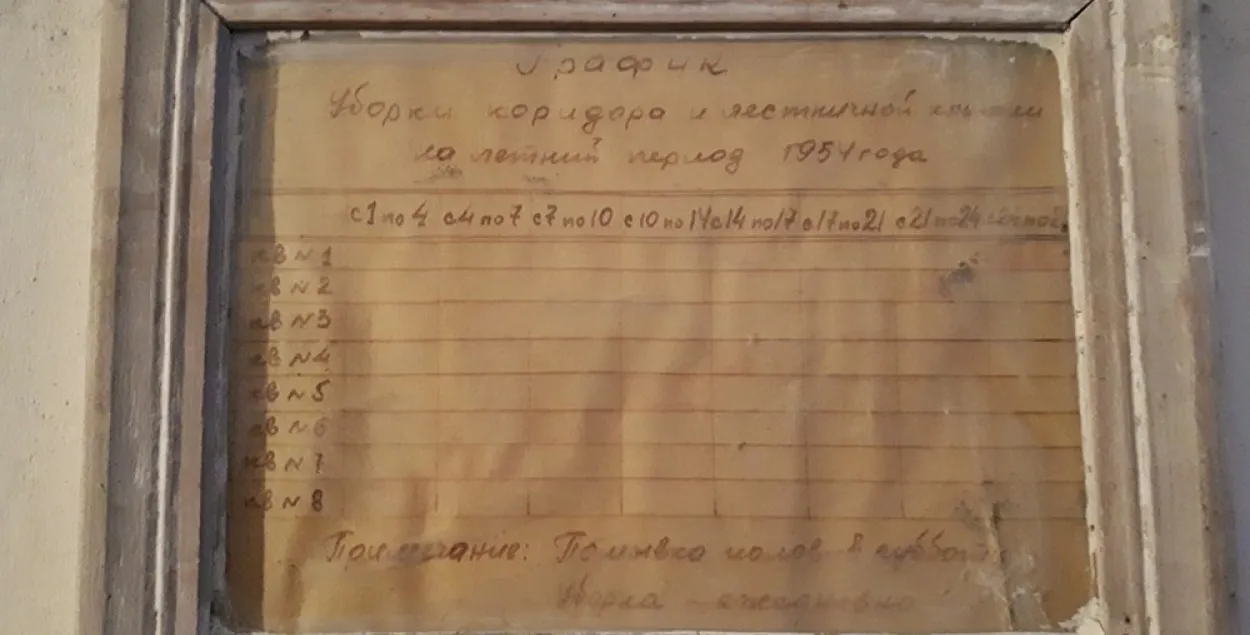 График
Уборки коридора и лестничной клетки
на летний период 1954 года
с 1 по 4 с 4 по 7 с 7 по 10 с 10 по 14 с 14 по 17 с 17 по 21 с 21 по 24
кв N 1
кв N 2
кв N 3
кв N 4
кв N 5
кв N 6
кв N 7
кв N 8
Примечание: Помывка полов в субботу
Уборка - ежедневно